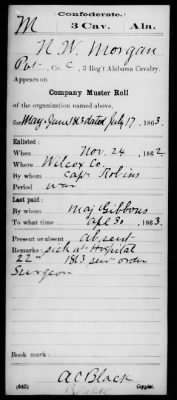 Confederate.
M 3 Cav. Ala.
N. W. Morgan
Pvt., Co. C, 3 Reg't Alabama Cavalry.
Appears on
Company Muster Roll
of the organization named above,
for May & June 1863 dated July 17, 1863.
Enlisted:
When Nov. 24, 1862
Where Wilcox Co.
By whom Capt Robins
Period war
Last paid:
By whom Maj Gibbons
To what time Apl 30, 1863.
Present or absent absent
Remarks: sick at Hospital
22nd 1863 order
Surgeon
Book mark:
A C Black
(642) Copyist.